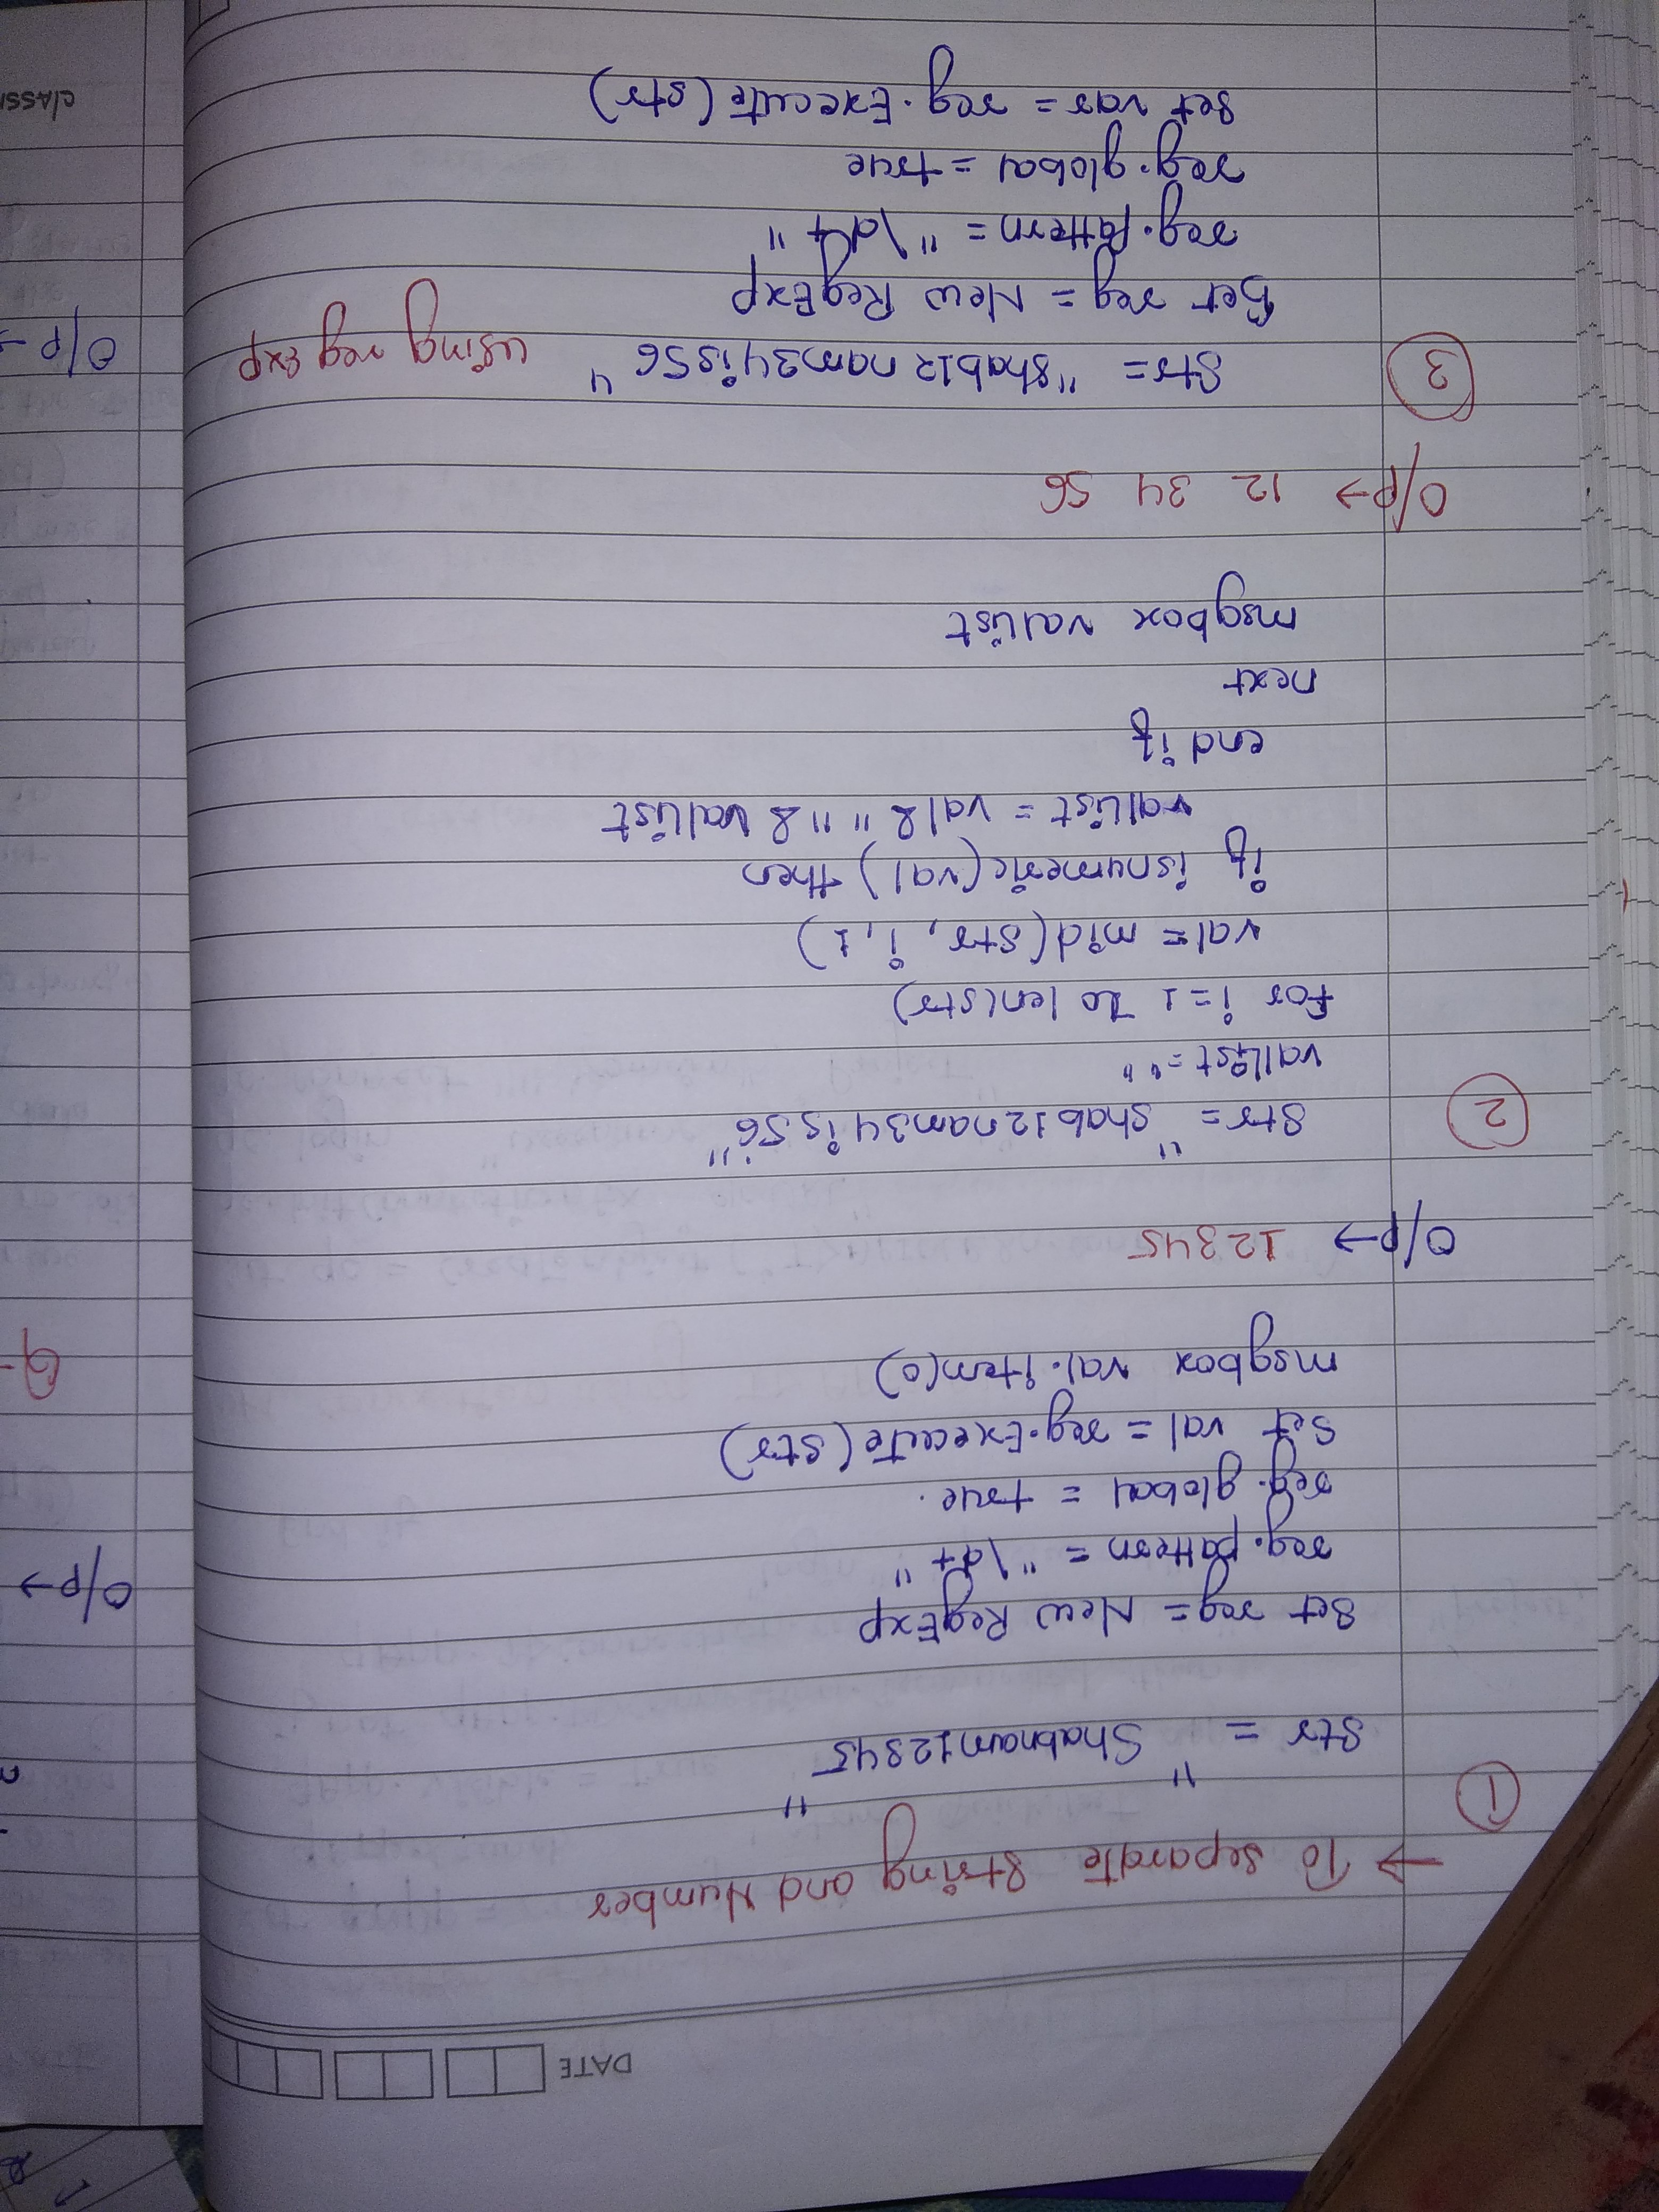 DATE
→ To separate String and Number
① Str = "Shabnam12345"
Set reg = New RegExp
reg.pattern = "\d+"
reg.global = true.
Set val = reg.Execute(str)
msgbox val.item(0)
O/P → 12345
② Str = "Shab12nam34is56"
vallist = ""
For i = 1 To len(str)
val = mid(str, i, 1)
if isnumeric(val) then
vallist = val & "" & vallist
end if
next
msgbox vallist
O/P → 12 34 56
③ Str = "Shab12nam34is56" using reg exp
Set reg = New RegExp
reg.pattern = "\d+"
reg.global = true
Set var = reg.Execute(str)
O/P →
Q-
O/P →
classm